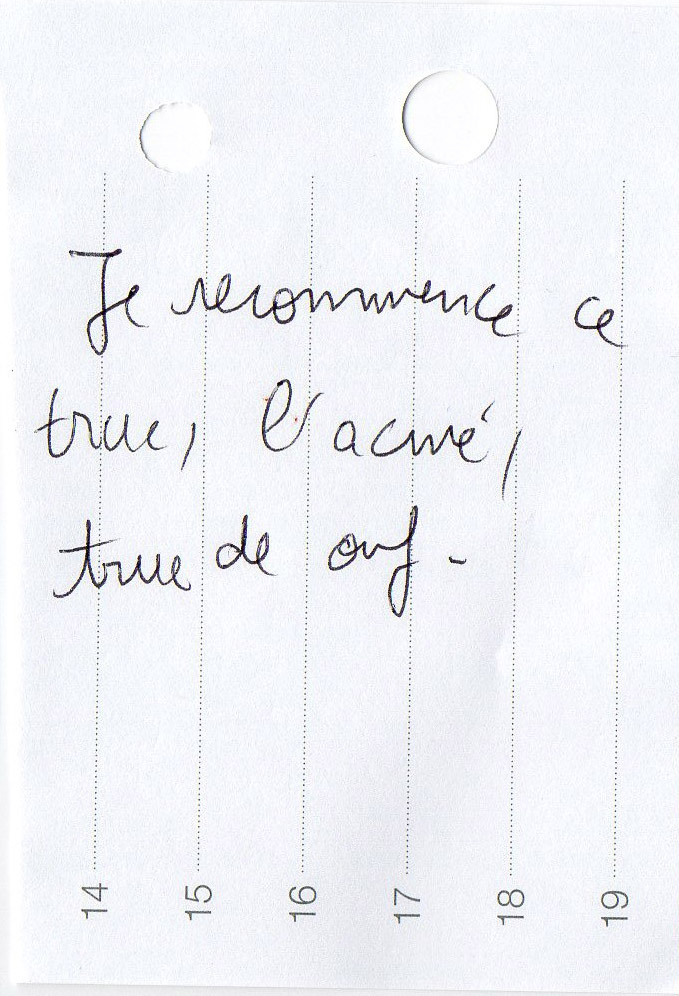 Je recommence ce
truc, l'acmé,
truc de ouf.
14
15
16
17
18
19